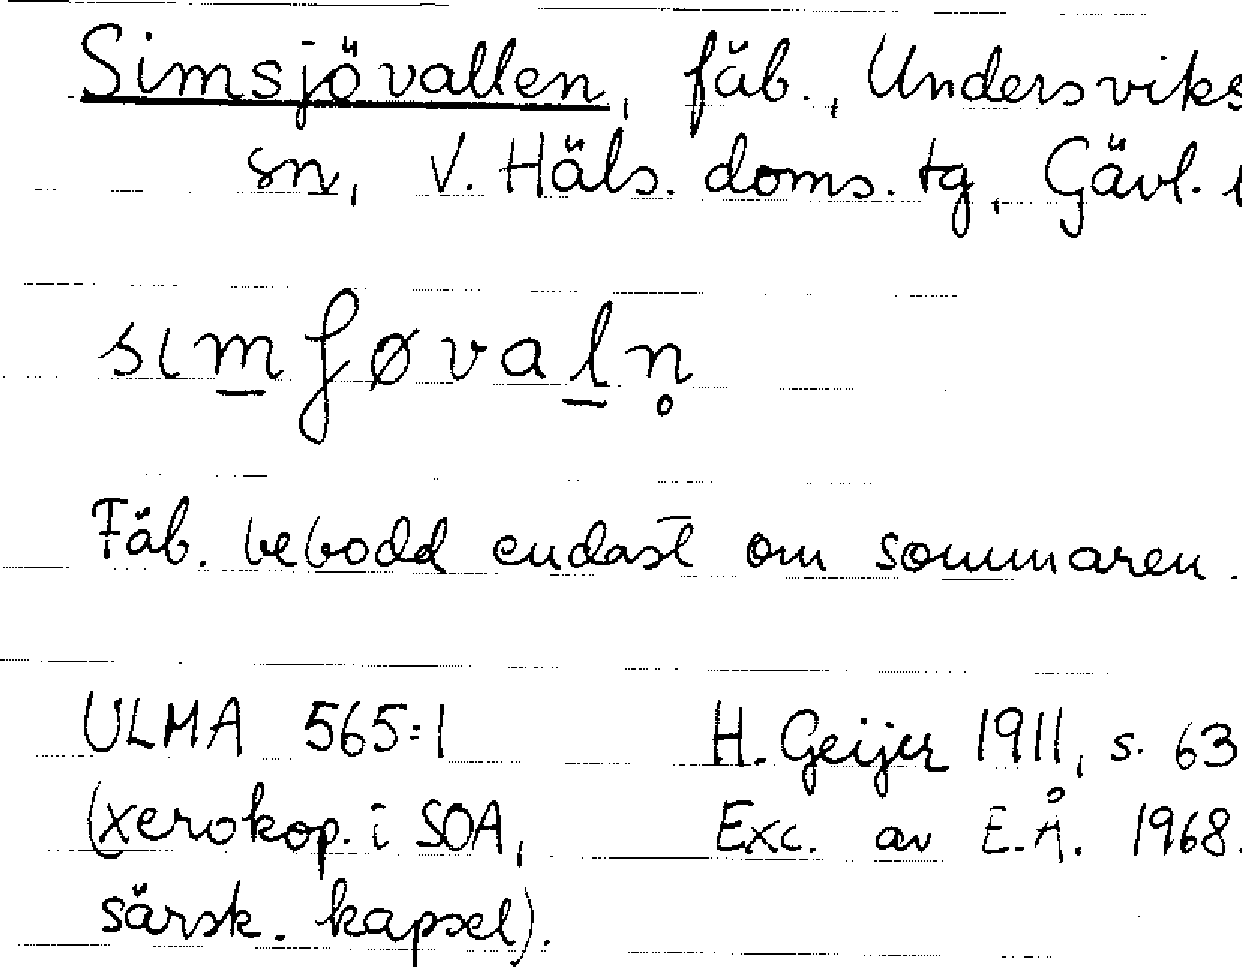 Simsjövallen, fäb., Undersviks
sn, V. Häls. doms. tg, Gävl.
sım̲ʃøval̲n̥
Fäb. bebodd endast om sommaren.
ULMA 565:1 H. Geijer 1911, s. 63
(xerokop. i SOA, Exc. av E.Å. 1968.
särsk. kapsel).